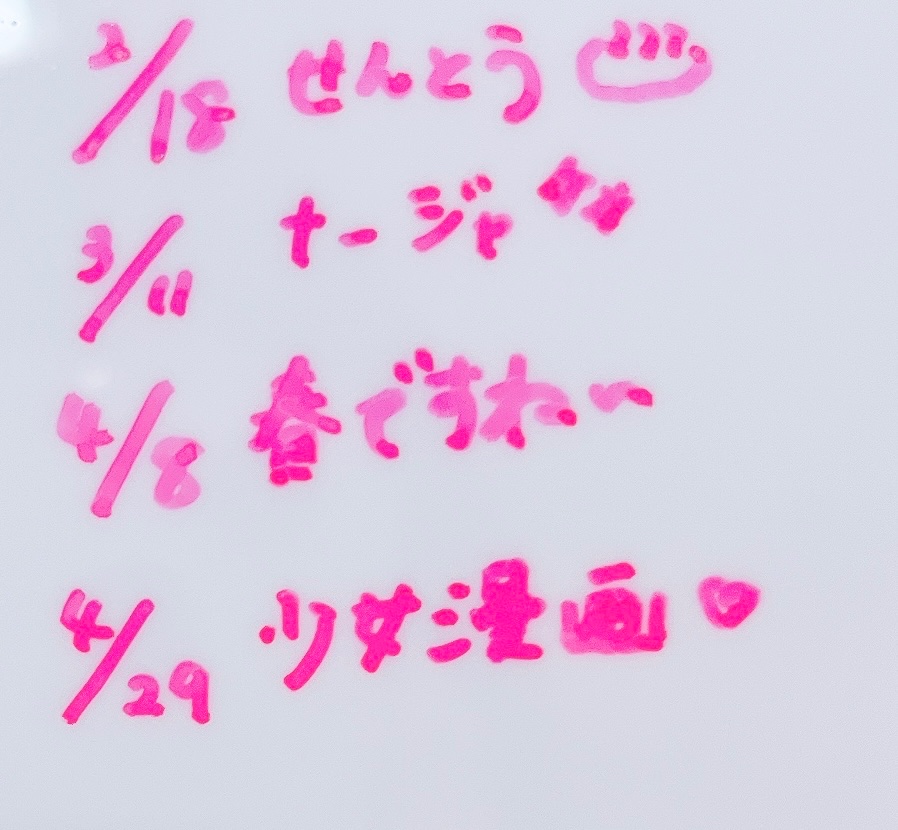 2/18 せんとう ♨
3/11 ナージャ
4/8 春ですね〜
4/29 少女漫画 ♡